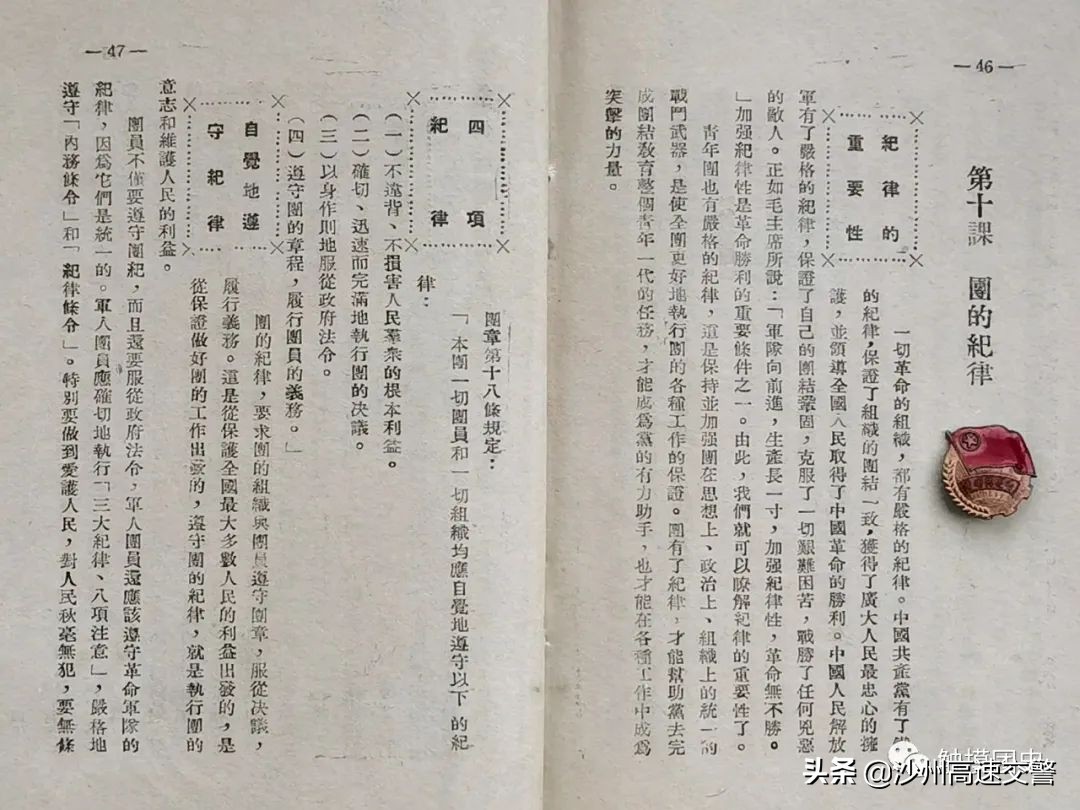 —46—
第十課　團的紀律
紀律的
重要性
一切革命的組織，都有嚴格的紀律。中國共產黨有了
的紀律，保證了組織的團結一致，獲得了廣大人民最忠心的擁
護，並領導全國人民取得了中國革命的勝利。中國人民解放
軍有了嚴格的紀律，保證了自己的團結鞏固，克服了一切艱難困苦，戰勝了任何兇惡
的敵人。正如毛主席所說：「軍隊向前進，生產長一寸，加强紀律性，革命無不勝。
」加强紀律性是革命勝利的重要條件之一。由此，我們就可以瞭解紀律的重要性了。
青年團也有嚴格的紀律，這是保持並加强團在思想上、政治上、組織上的統一的
戰鬥武器，是使全團更好地執行團的各種工作的保證。團有了紀律，才能幫助黨去完
成團結敎育整個青年一代的任務，才能成爲黨的有力助手，也才能在各種工作中成爲
突擊的力量。
—47—
四項
紀律
團章第十八條規定：
「本團一切團員和一切組織均應自覺地遵守以下的紀
律：
（一）不違背、不損害人民羣衆的根本利益。
（二）確切、迅速而完滿地執行團的決議。
（三）以身作則地服從政府法令。
（四）遵守團的章程，履行團員的義務。」
自覺地遵
守紀律
團的紀律，要求團的組織與團員遵守團章，服從決議，
履行義務。這是從保護全國最大多數人民的利益出發的，是
從保證做好團的工作出發的，遵守團的紀律，就是執行團的
意志和維護人民的利益。
團員不僅要遵守團紀，而且還要服從政府法令，軍人團員還應該遵守革命軍隊的
紀律，因爲它們是統一的。軍人團員應確切地執行「三大紀律、八項注意」，嚴格地
遵守「內務條令」和「紀律條令」。特別要做到愛護人民，對人民秋毫無犯，要無條
触摸团史
头条 @沙州高速交警